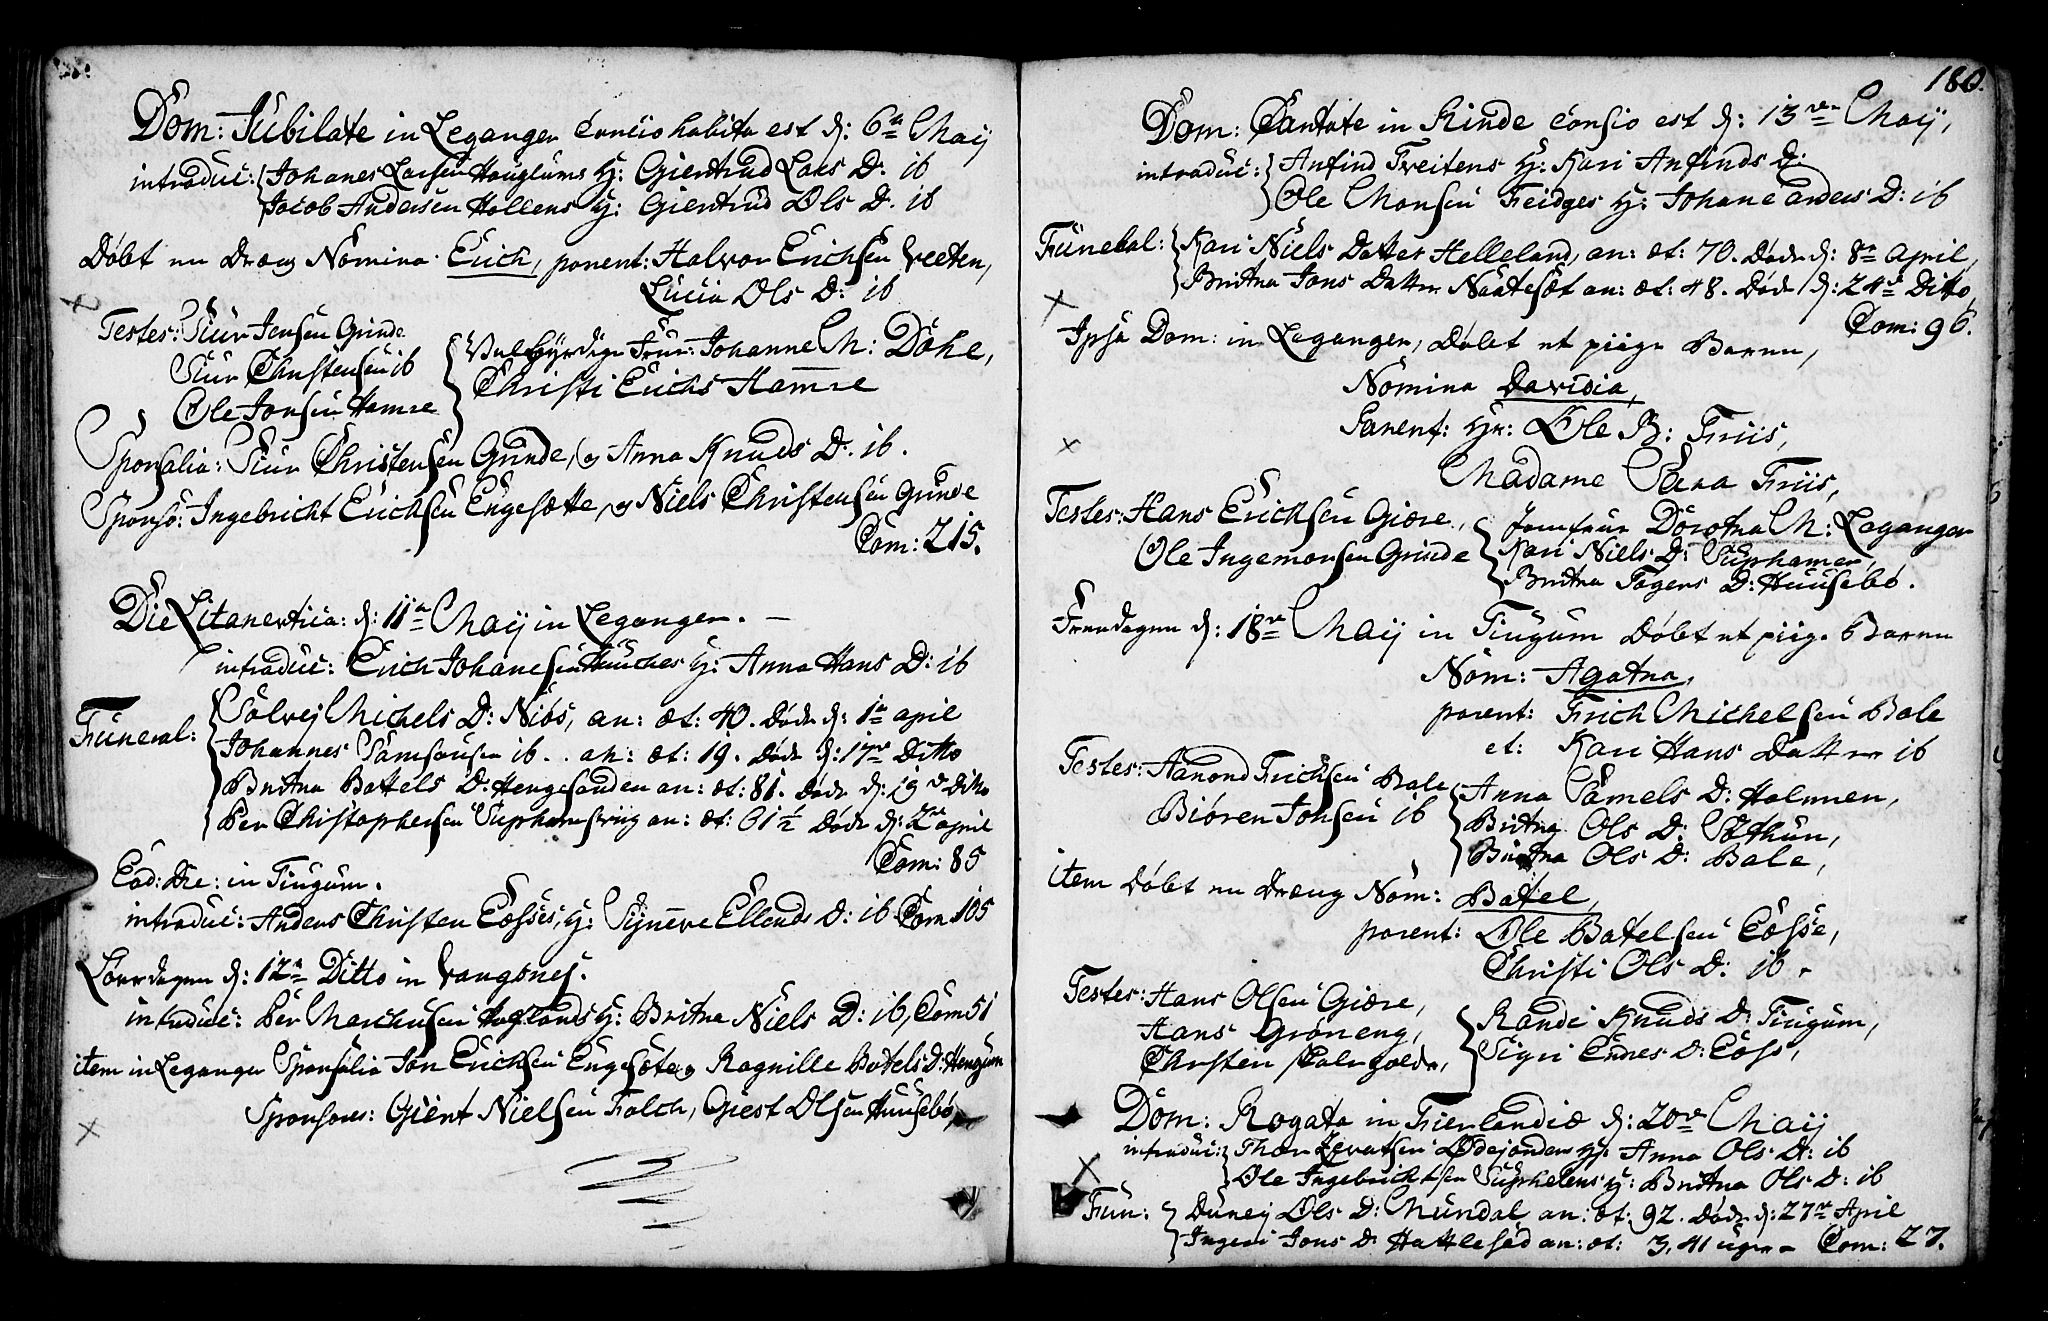 Dom: Jubilate in Leganger Concio habita est d: 6te Maij
introduc: Johanes Larsen Hauglums H: Giertrud Lars D. ib
Jacob Andersen Hollens H: Giertrud Ols D. ib
Døbt en Dreng Nomina Erich, parent: Halvor Erichsen Veeten,
Lucia Ols D: ib
Testes: Siur Jensen Grinde
Siur Christensen ib
Ole Jonsen Hamre
Velbyrdige Frue: Johanne M: Døhe,
Christi Erichs Hamre
Sponsalia: Siur Christensen Grinde, og Anna Knuds D. ib.
Sponso: Ingebricht Erichsen Engesætte, og Niels Christensen Grinde
Com: 215.
Die Litanertica: d: 11te Maij in Leganger.
introduc: Erich Johanesen H: Anna Hans D: ib
Funeral: Solvej Michels D: Niøs, an: æt: 40. Døde d: 1te april
Johannes Samsonsen ib. an: æt: 19. Døde d: 17de Ditto
Britha Bottels D: Hengesanden an: æt: 81. Døde d: 19de Ditto
Per Christophersen Suphamsring an: æt: 61½ Døde d: 2de april
Com: 85
Eod: Die: in Tiugum.
introduc: Anders Christen Eosses, H: Synneve Ellends D: ib Com 105
Løverdagen d: 12te Ditto in Vangsnes.
introduc: Per Marchusen Hoglands H: Britha Niels D: ib, Com 51
item in Leganger Sponsalia Jon Erichsen Engesæte og Ragnille Botels D: Henjum
Sponsores: Gient Nielsen Folch, Giest Olsen Huusebø
180.
Dom: Cantate in Rinde Consio est d: 13de Maij,
introduc: Anfind Tveitens H: Kari Anfinds D:
Ole Monsen Feidges H: Johane Anders D: ib
Funebal: Kari Niels Datter Helleland, an: æt: 70. Døde d: 8de April,
Britha Jons Datter Nøttesæt an: æt: 48. Døde d: 24de Ditto
Com: 96.
Ipsa Dom: in Leganger, Døbt et piige Barn,
Nomina Davidia,
Parent: Hr: Ole B: Friis,
Madame Sara Friis,
Testes: Hans Erichsen Giære,
Ole Ingemonsen Grinde
Jomfrue Dorotha M: Leganger
Kari Niels D: Suphamer,
Britha Tagers D: Huusebø.
Freedagen d: 18de Maij in Tiugum Døbt et piige Barn
Nom: Agatha,
parent: Erich Michelsen Bale
et: Kari Hans Datter ib
Testes: Aamond Erichsen Bale
Biøren Jonsen ib
Anna Samels D: Holmen,
Britha Ols D: Sæthun,
Britha Ols D: Bale,
item Døbt en Dreng Nom: Batel,
parent: Ole Batelsen Eosse,
Christi Ols D: ib.
Testes: Hans Olsen Giære,
Hans Grøneng,
Christen
Randi Knuds D: Tiugum,
Sigri Endres D: Eoss,
Dom: Rogate in Fierlandiæ d: 20de Maij
introduc: Thor Ødejordens H: Anna Ols D: ib
Ole Ingebrichtsen Suphelens H: Britha Ols D: ib
Fun: Durej Ols D: Mundal an: æt: 92. Døde d: 27de April
Ingeri Jons D: Hattlesæd an: æt: 3, 41 uger Com: 27.